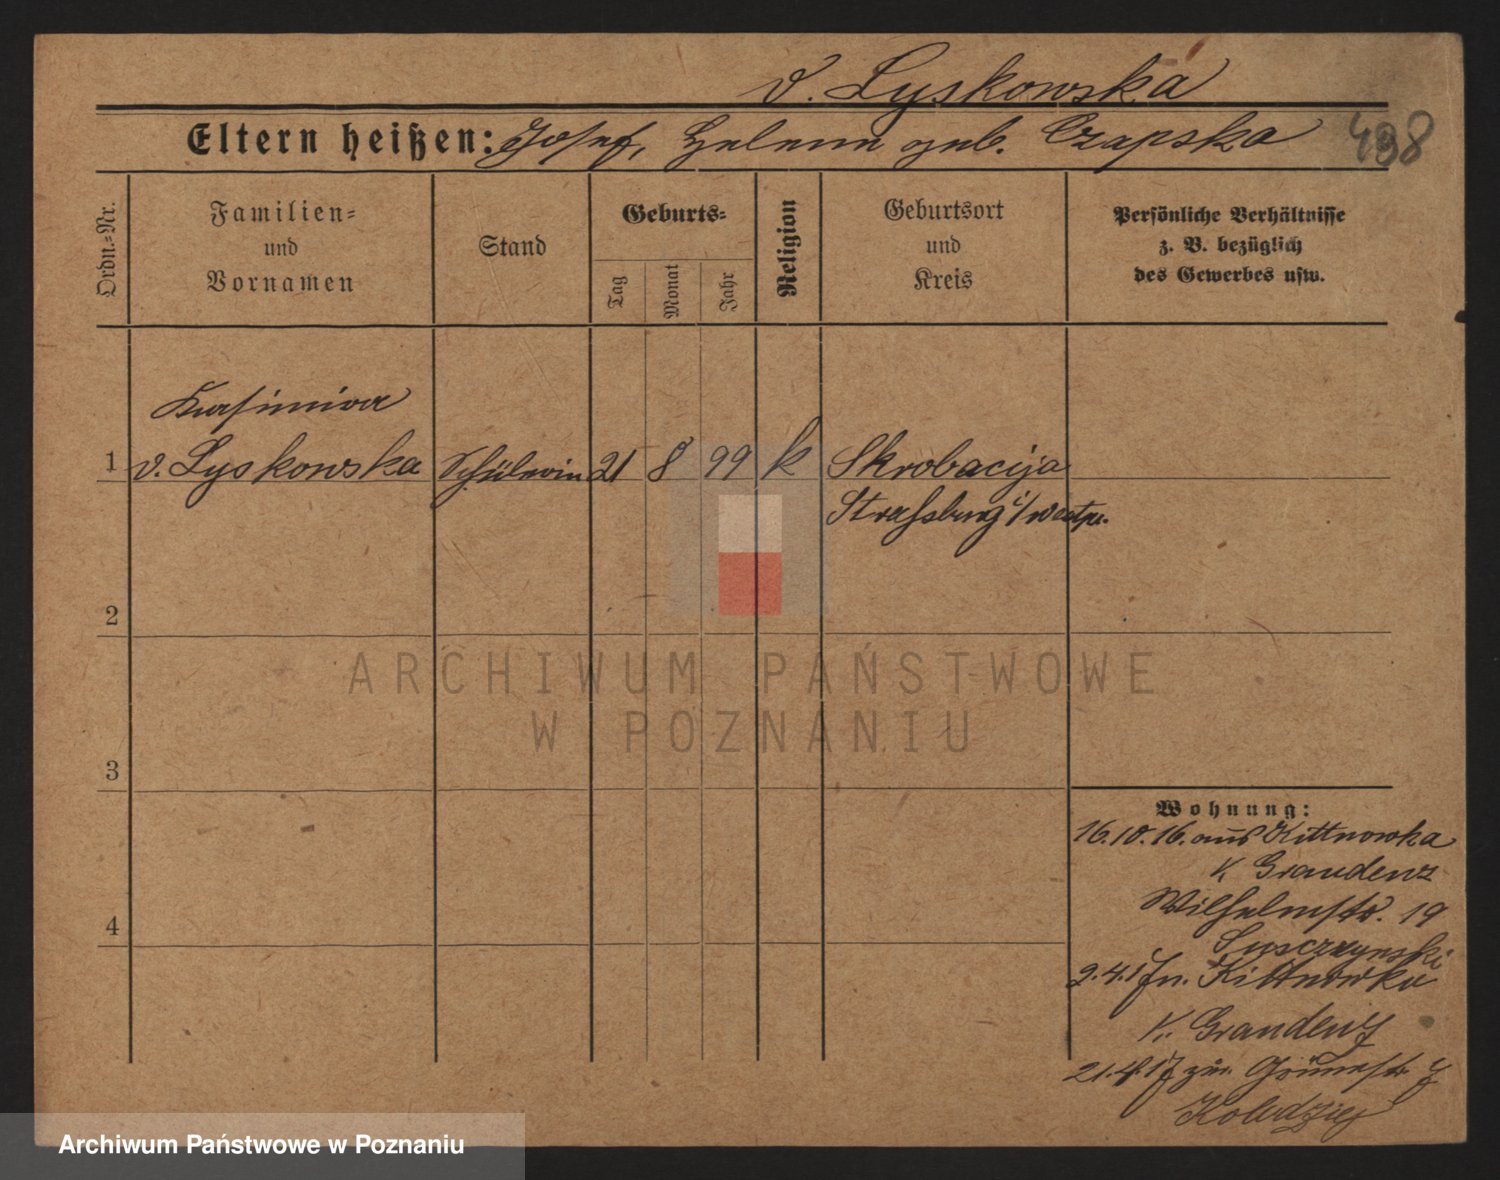 v. Lyskowska
Eltern heißen: Josef, Helene geb. Czapska
438
Ordn.-Nr.
Familien-
und
Vornamen
Stand
Geburts-
Tag
Monat
Jahr
Religion
Geburtsort
und
Kreis
Persönliche Verhältnisse
z. B. bezüglich
des Gewerbes usw.
Kasimira
1 v. Lyskowska Schülerin 21 8 99 k Skrobacija
Strassburg i/westpr.
2
3
4
Wohnung:
16.10.16. aus Kittnowka
K. Graudenz
Wilhelmstr. 19
9.4.17 n. Kittnowko
K. Graudenz
21.4.17 zur. Grünestr. 7
Kolodziej
ARCHIWUM PAŃSTWOWE
W POZNANIU
Archiwum Państwowe w Poznaniu